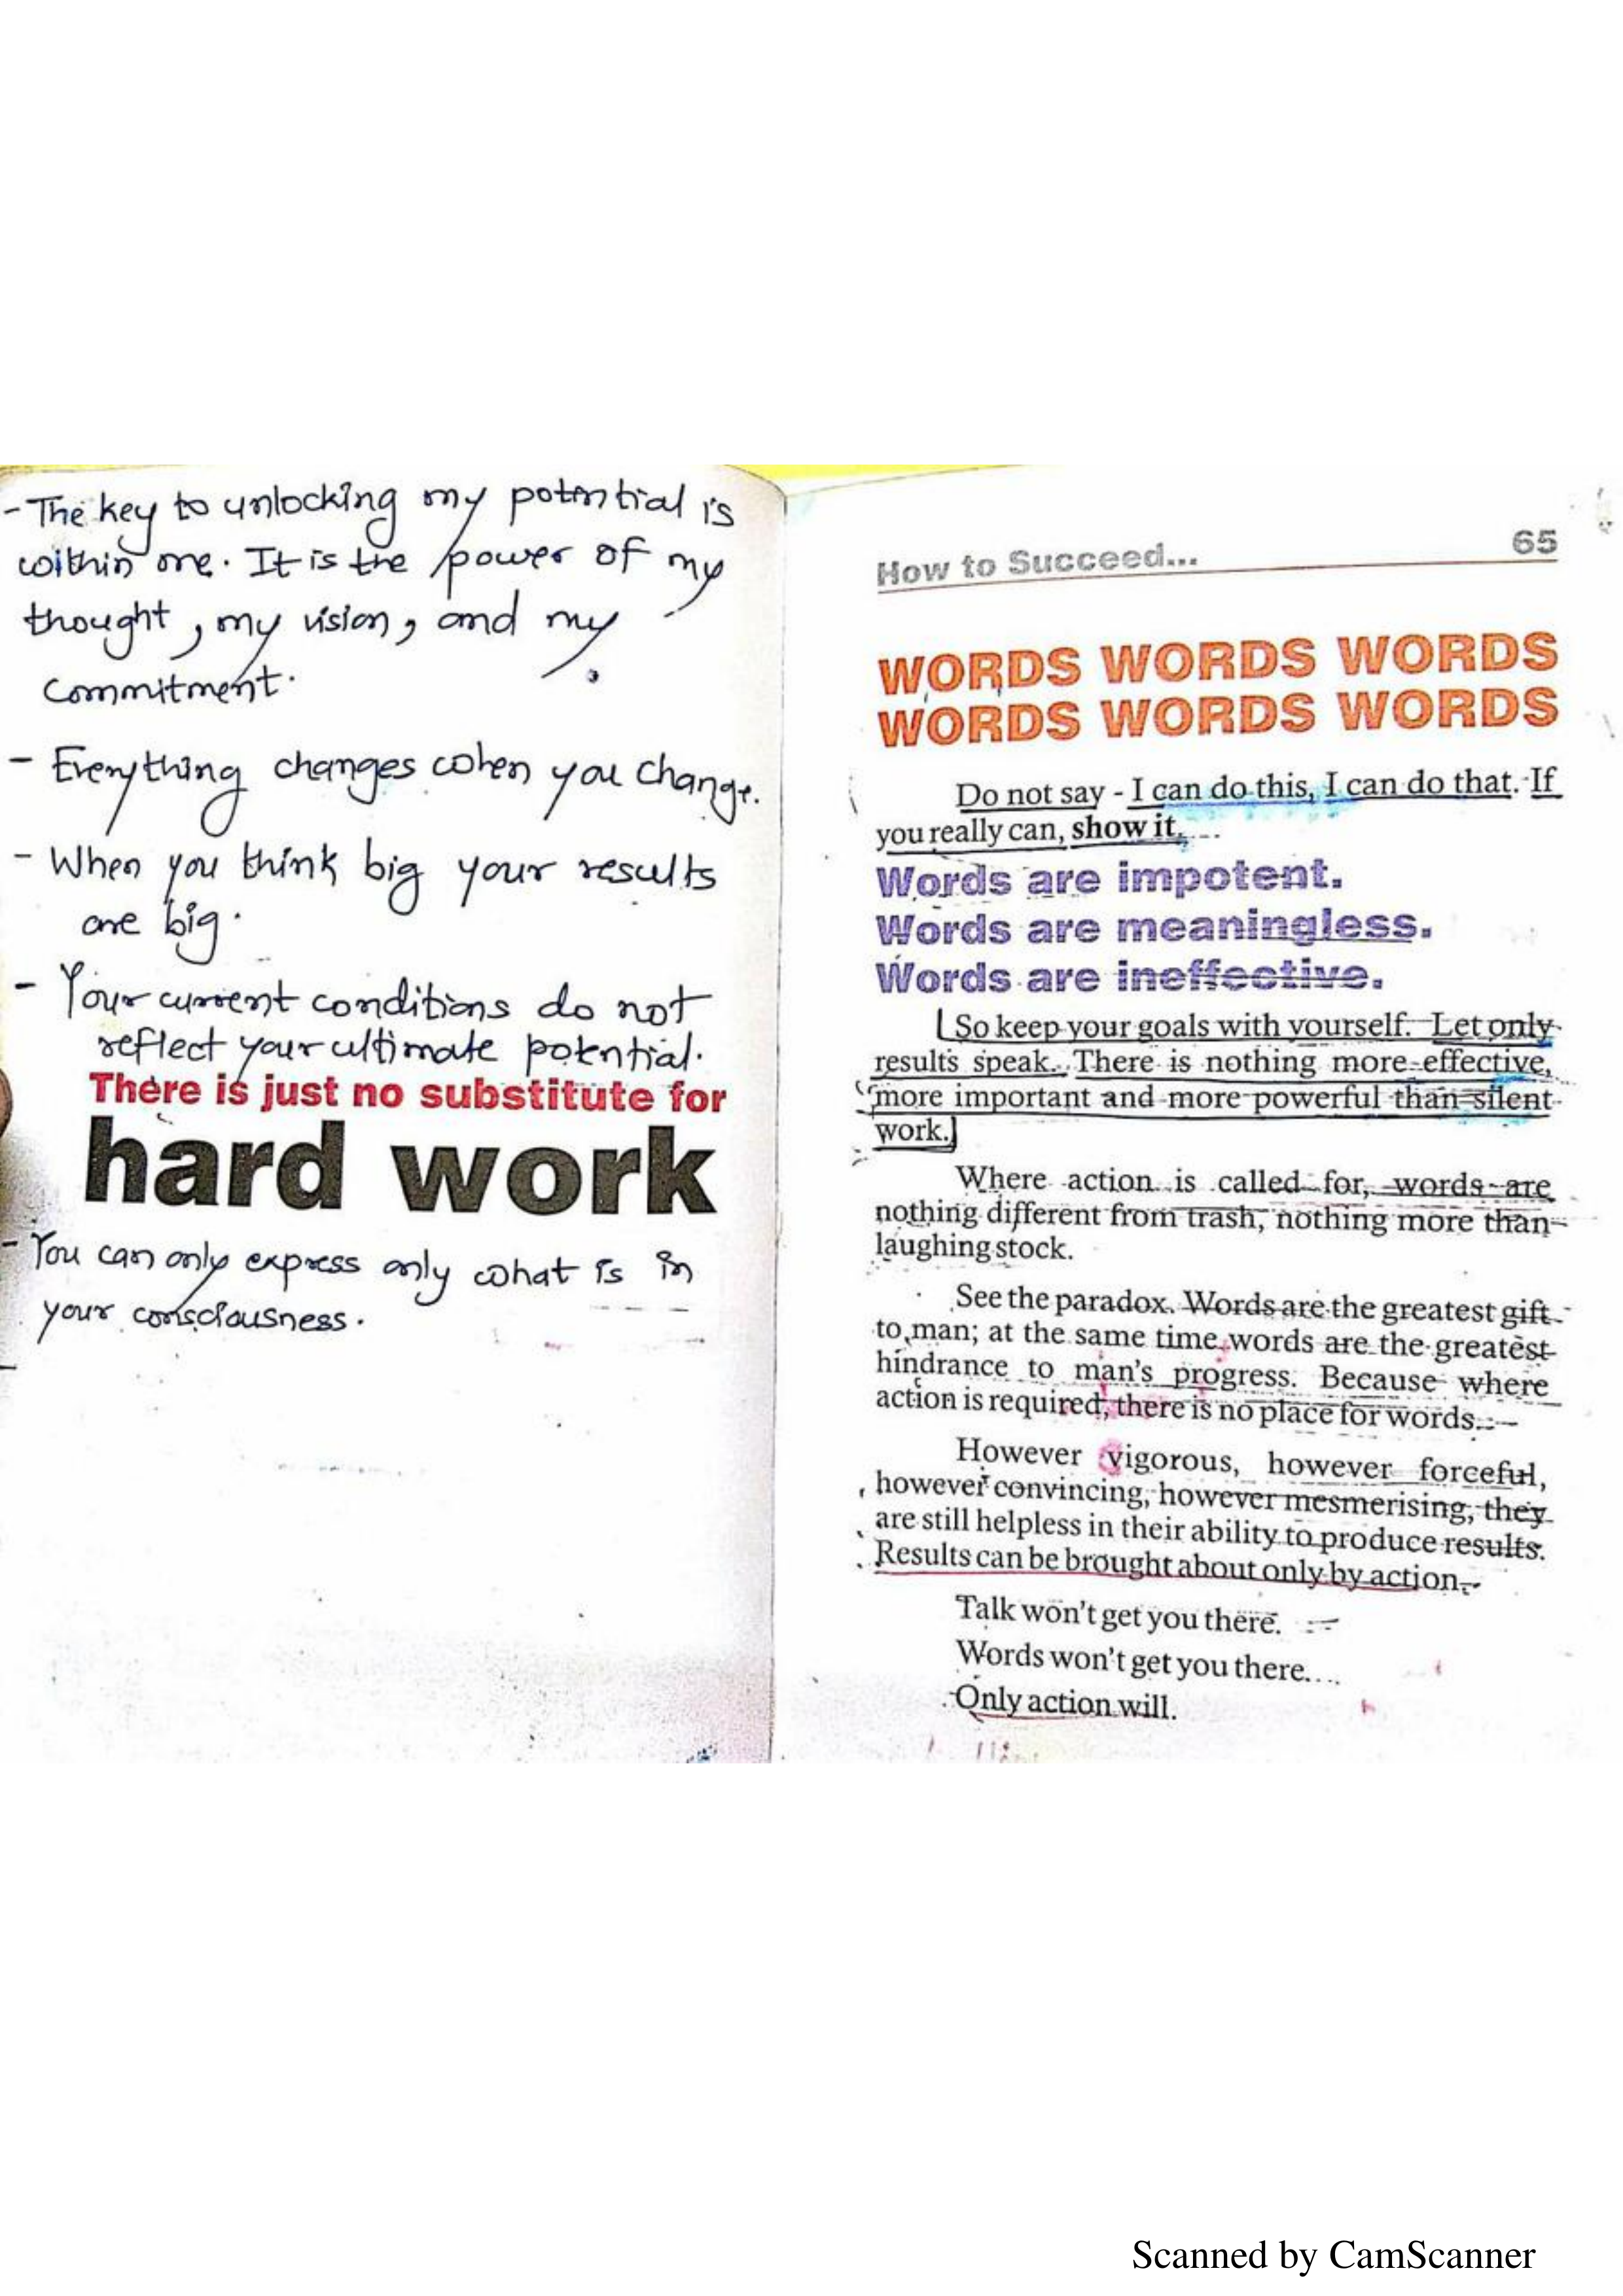 - The key to unlocking my potential is
within me. It is the power of my
thought, my vision, and my
commitment.
- Everything changes when you change.
- When you think big your results
are big.
- Your current conditions do not
reflect your ultimate potential.
There is just no substitute for
hard work
- You can only express only what is in
your consciousness.
How to Succeed... 65
WORDS WORDS WORDS
WORDS WORDS WORDS
Do not say - I can do this, I can do that. If
you really can, show it.
Words are impotent.
Words are meaningless.
Words are ineffective.
So keep your goals with yourself. Let only
results speak. There is nothing more effective,
more important and more powerful than silent
work.
Where action is called for, words are
nothing different from trash, nothing more than
laughing stock.
See the paradox. Words are the greatest gift
to man; at the same time, words are the greatest
hindrance to man's progress. Because where
action is required, there is no place for words.
However vigorous, however forceful,
however convincing, however mesmerising, they
are still helpless in their ability to produce results.
Results can be brought about only by action.
Talk won't get you there.
Words won't get you there...
Only action will.
Scanned by CamScanner